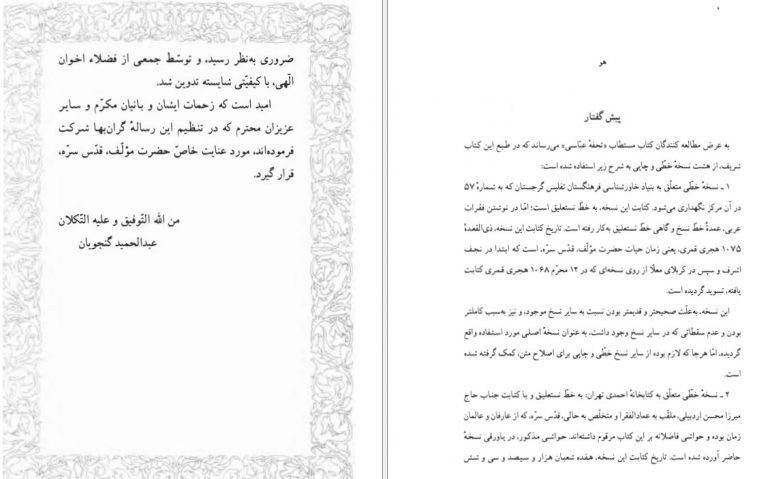 ضروری به‌نظر رسید، و توسّط جمعی از فضلاء اخوان
الهی، با کیفیّتی شایسته تدوین شد.
امید است که زحمات ایشان و بانیان مکرّم و سایر
عزیزان محترم که در تنظیم این رسالهٔ گران‌بها شرکت
فرموده‌اند، مورد عنایت خاصّ حضرت مؤلّف، قدّس سرّه،
قرار گیرد.
من الله التّوفیق و علیه التّکلان
عبدالحمید گنجویان
هو
پیش گفتار
به عرض مطالعه کنندگان کتاب مستطاب «تحفهٔ عبّاسی» می‌رساند که در طبع این کتاب
شریف، از هشت نسخهٔ خطّی و چاپی به شرح زیر استفاده شده است:
۱ ـ نسخهٔ خطّی متعلّق به بنیاد خاورشناسی فرهنگستان تفلیس گرجستان که به شمارهٔ ۵۷
در آن مرکز نگهداری می‌شود. کتابت این نسخه، به خطّ نستعلیق است؛ امّا در نوشتن فقرات
عربی، عمدةً خطّ نسخ و گاهی خطّ نستعلیق به‌کار رفته است. تاریخ کتابت این نسخه، ذی‌القعدهٔ
۱۰۷۵ هجری قمری، یعنی زمان حیات حضرت مؤلّف، قدّس سرّه، است که ابتدا در نجف
اشرف و سپس در کربلای معلّا از روی نسخه‌ای که در ۱۲ محرّم ۱۰۶۸ هجری قمری کتابت
یافته، تسوید گردیده است.
این نسخه، به‌علّت صحیحتر و قدیمتر بودن نسبت به سایر نسخ موجود، و نیز به‌سبب کاملتر
بودن و عدم سقطاتی که در سایر نسخ وجود داشت، به عنوان نسخهٔ اصلی مورد استفاده واقع
گردیده، امّا هرجا که لازم بوده از سایر نسخ خطّی و چاپی برای اصلاح متن، کمک گرفته شده
است.
۲ ـ نسخهٔ خطّی متعلّق به کتابخانهٔ احمدی تهران: به خطّ نستعلیق و با کتابت جناب حاج
میرزا محسن اردبیلی، ملقّب به عمادالفقرا و متخلّص به حالی، قدّس سرّه، که از عارفان و عالمان
زمان بوده و حواشی فاضلانه بر این کتاب مرقوم داشته‌اند. حواشی مذکور، در پاورقی نسخهٔ
حاضر آورده شده است. تاریخ کتابت این نسخه، هفده شعبان هزار و سیصد و سی و شش